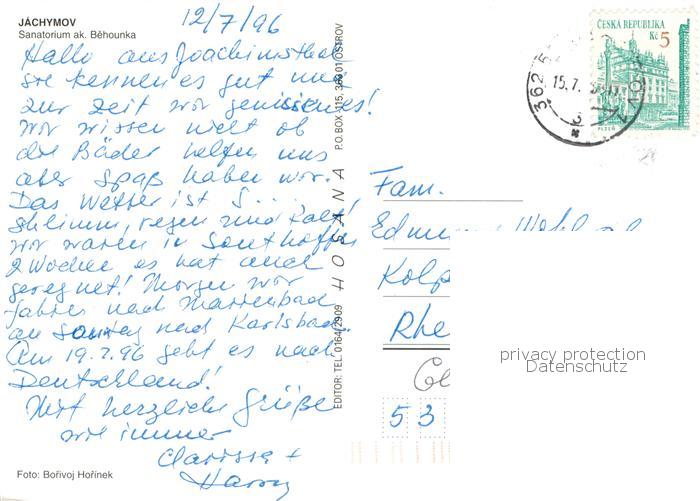 JÁCHYMOV
Sanatorium ak. Běhounka
12/7/96
Hallo aus Joachimsthal
sie kennen es gut und
zur zeit wir geniessen es!
Wir wissen nicht ob
die Bäder helfen uns
aber Spaß haben wir.
Das Wetter ist S....
shlimm, regen und kalt!
Wir waren in Sonthoffen
2 Wochen es hat auch
geregnet! Morgen wir
fahren nach Marienbad
an Sontag nach Karlsbad.
Am 19.7.96 geht es nach
Deutschland!
Mit herzliche Grüße
wie immer
Clarissa +
Harry
Foto: Bořivoj Hořínek
EDITOR: TEL. 0164/2909 HOSANA P.O.BOX 115, 363 01 OSTROV
ČESKÁ REPUBLIKA
Kč 5
PLZEŇ
15.7.
Fam.
Kolp
Rhe
53
privacy protection
Datenschutz